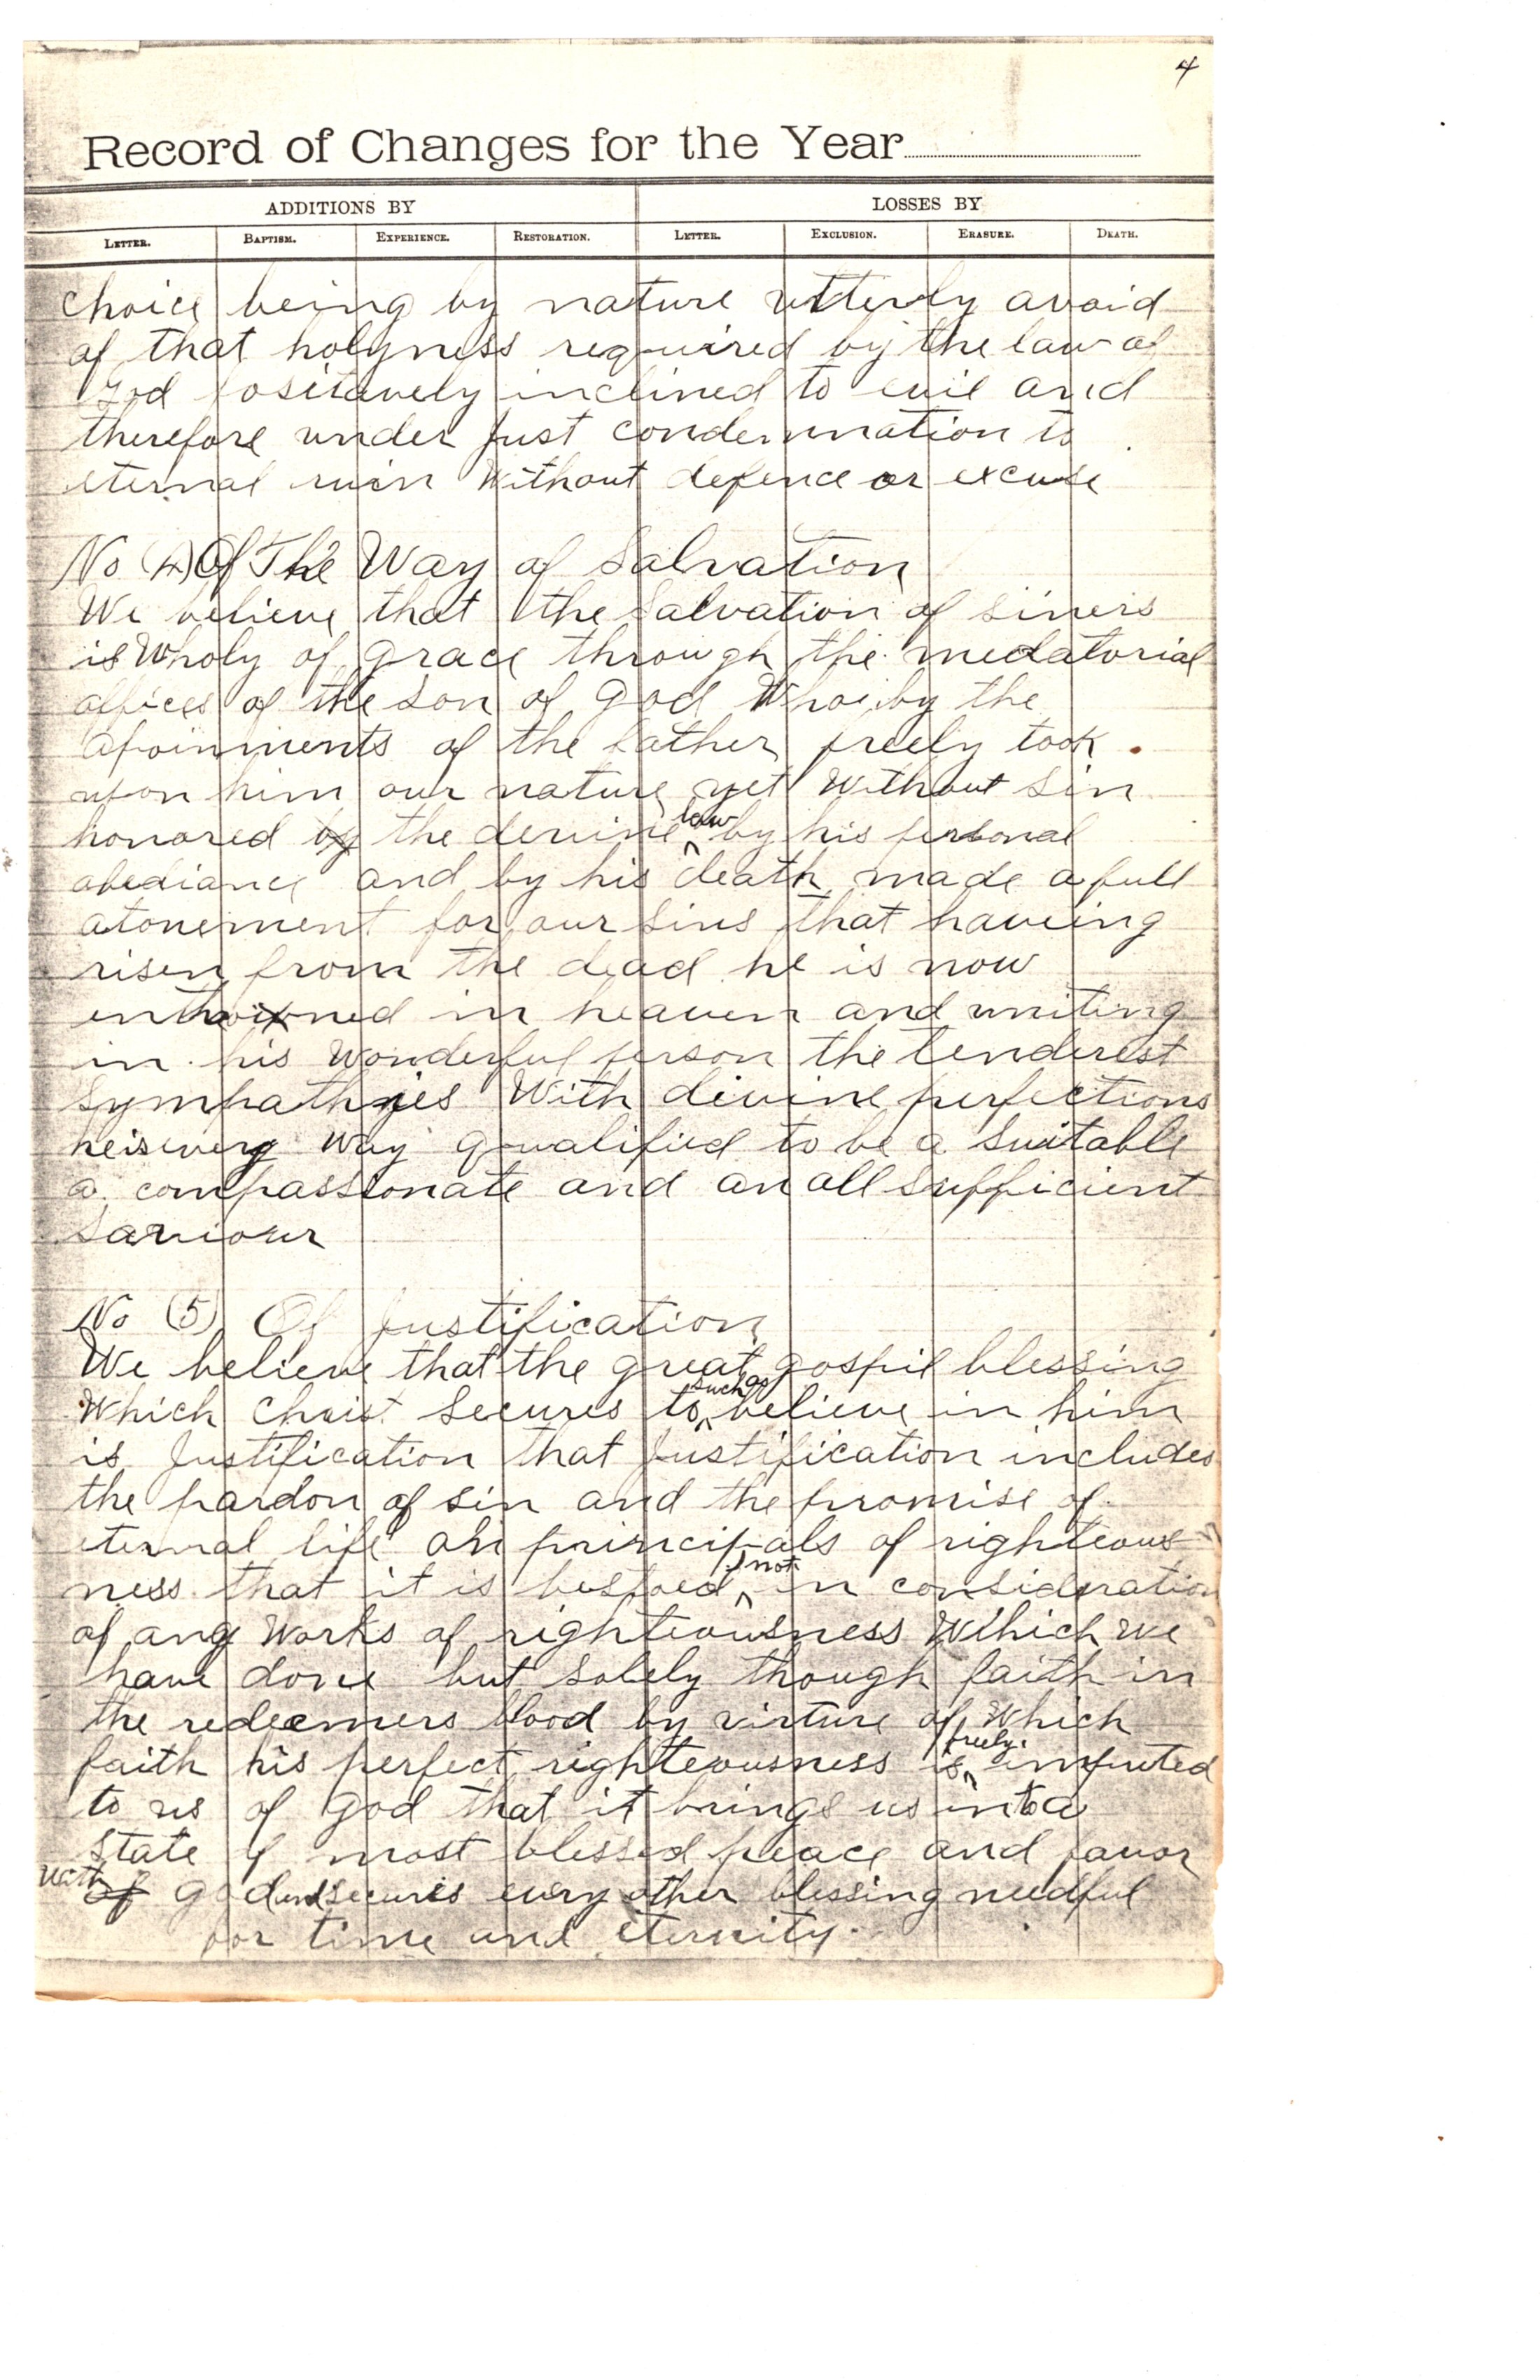 4
Record of Changes for the Year
ADDITIONS BY LOSSES BY
LETTER. BAPTISM. EXPERIENCE. RESTORATION. LETTER. EXCLUSION. ERASURE. DEATH.
choice being by nature utterly avoid
of that holyness required by the law of
God positively inclined to evil and
therefore under just condemnation to
eternal ruin without defence or excuse
No (4) Of The Way of Salvation
We believe that the Salvation of siners
is Wholy of grace through the medatorial
offices of the son of God Who by the
apoinments of the father freely took
upon him our nature yet Without sin
honored the devine law by his personal
obediance and by his death made a full
atonement for our sins that haveing
risen from the dead he is now
enthroned in heaven and uniting
in his Wonderful person the tenderest
sympathies With divine perfections
he is every way qualified to be a suitable
a compassionate and an all sufficient
Saviour
No (5) Of Justification
We believe that the great gospil blessing
Which Christ secures to such as believe in him
is Justification that Justification includes
the pardon of sin and the promise of
eternal life on principals of righteous
ness that it is bestoed not in consideration
of any Works of righteousness Which we
have done but solely though faith in
the redeemers blood by virture of Which
faith his perfect righteousness is freely imputed
to us of god that it brings us into a
state of most blessed peace and favor
With god and secures every other blessing needful
for time and eternity.